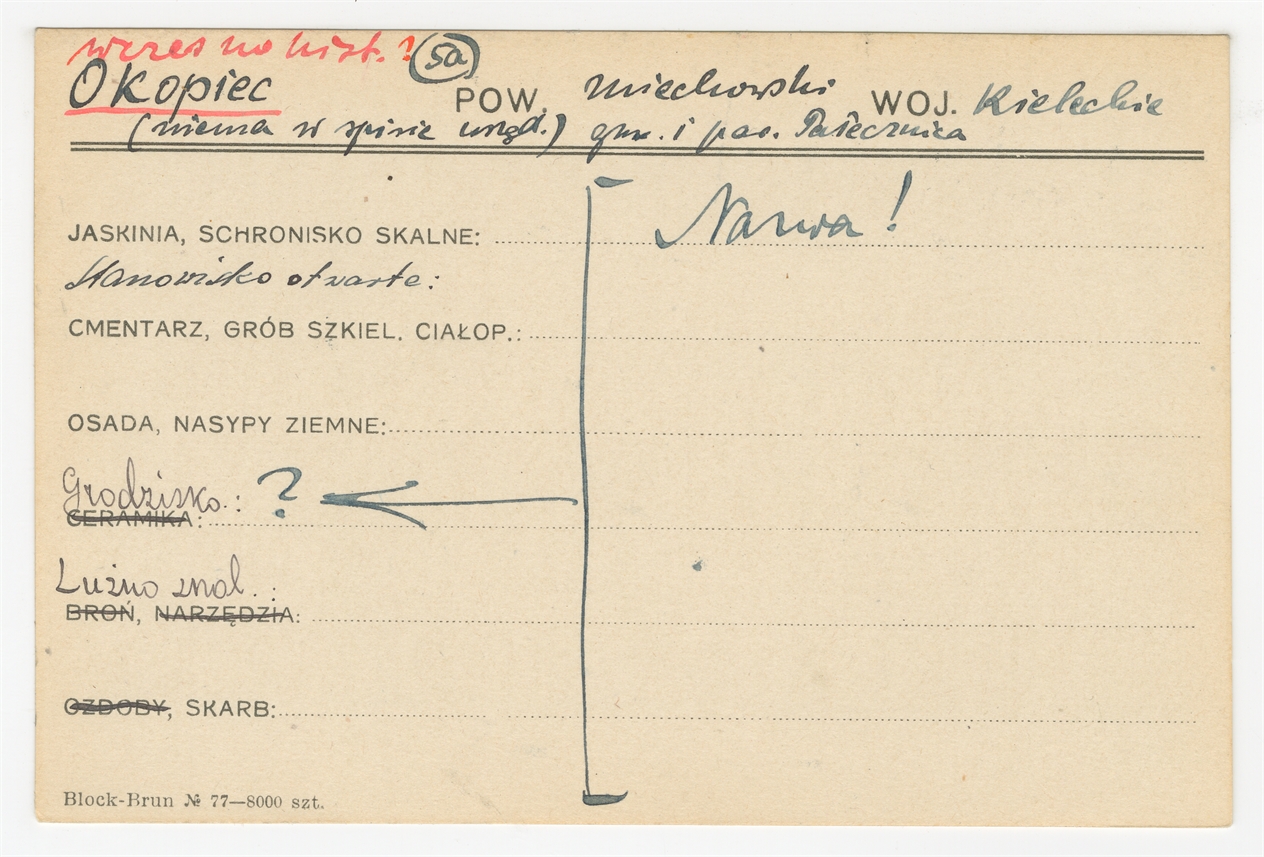 wczesno hist.? 5a
Okopiec POW. miechowski WOJ. Kieleckie
(niema w spisie urzęd.) gm. i par. Pałecznica
JASKINIA, SCHRONISKO SKALNE: Nazwa!
Stanowisko otwarte:
CMENTARZ, GRÓB SZKIEL. CIAŁOP.:
OSADA, NASYPY ZIEMNE:
Grodzisko.: ?
CERAMIKA:
Luźno znal.:
BROŃ, NARZĘDZIA:
OZDOBY, SKARB:
Block-Brun № 77—8000 szt.